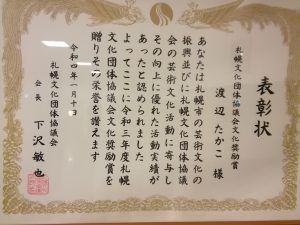 表彰状
札幌文化団体協議会文化奨励賞
渡辺 たかこ 様
あなたは札幌市の芸術文化の
振興並びに札幌文化団体協議
会の芸術文化活動に寄与し
その向上に優れた活動実績が
あったと認められました
よってここに令和三年度札幌
文化団体協議会文化奨励賞を
贈りその栄誉を讃えます
令和四年一月十日
札幌文化団体協議会
会長 下沢敏也